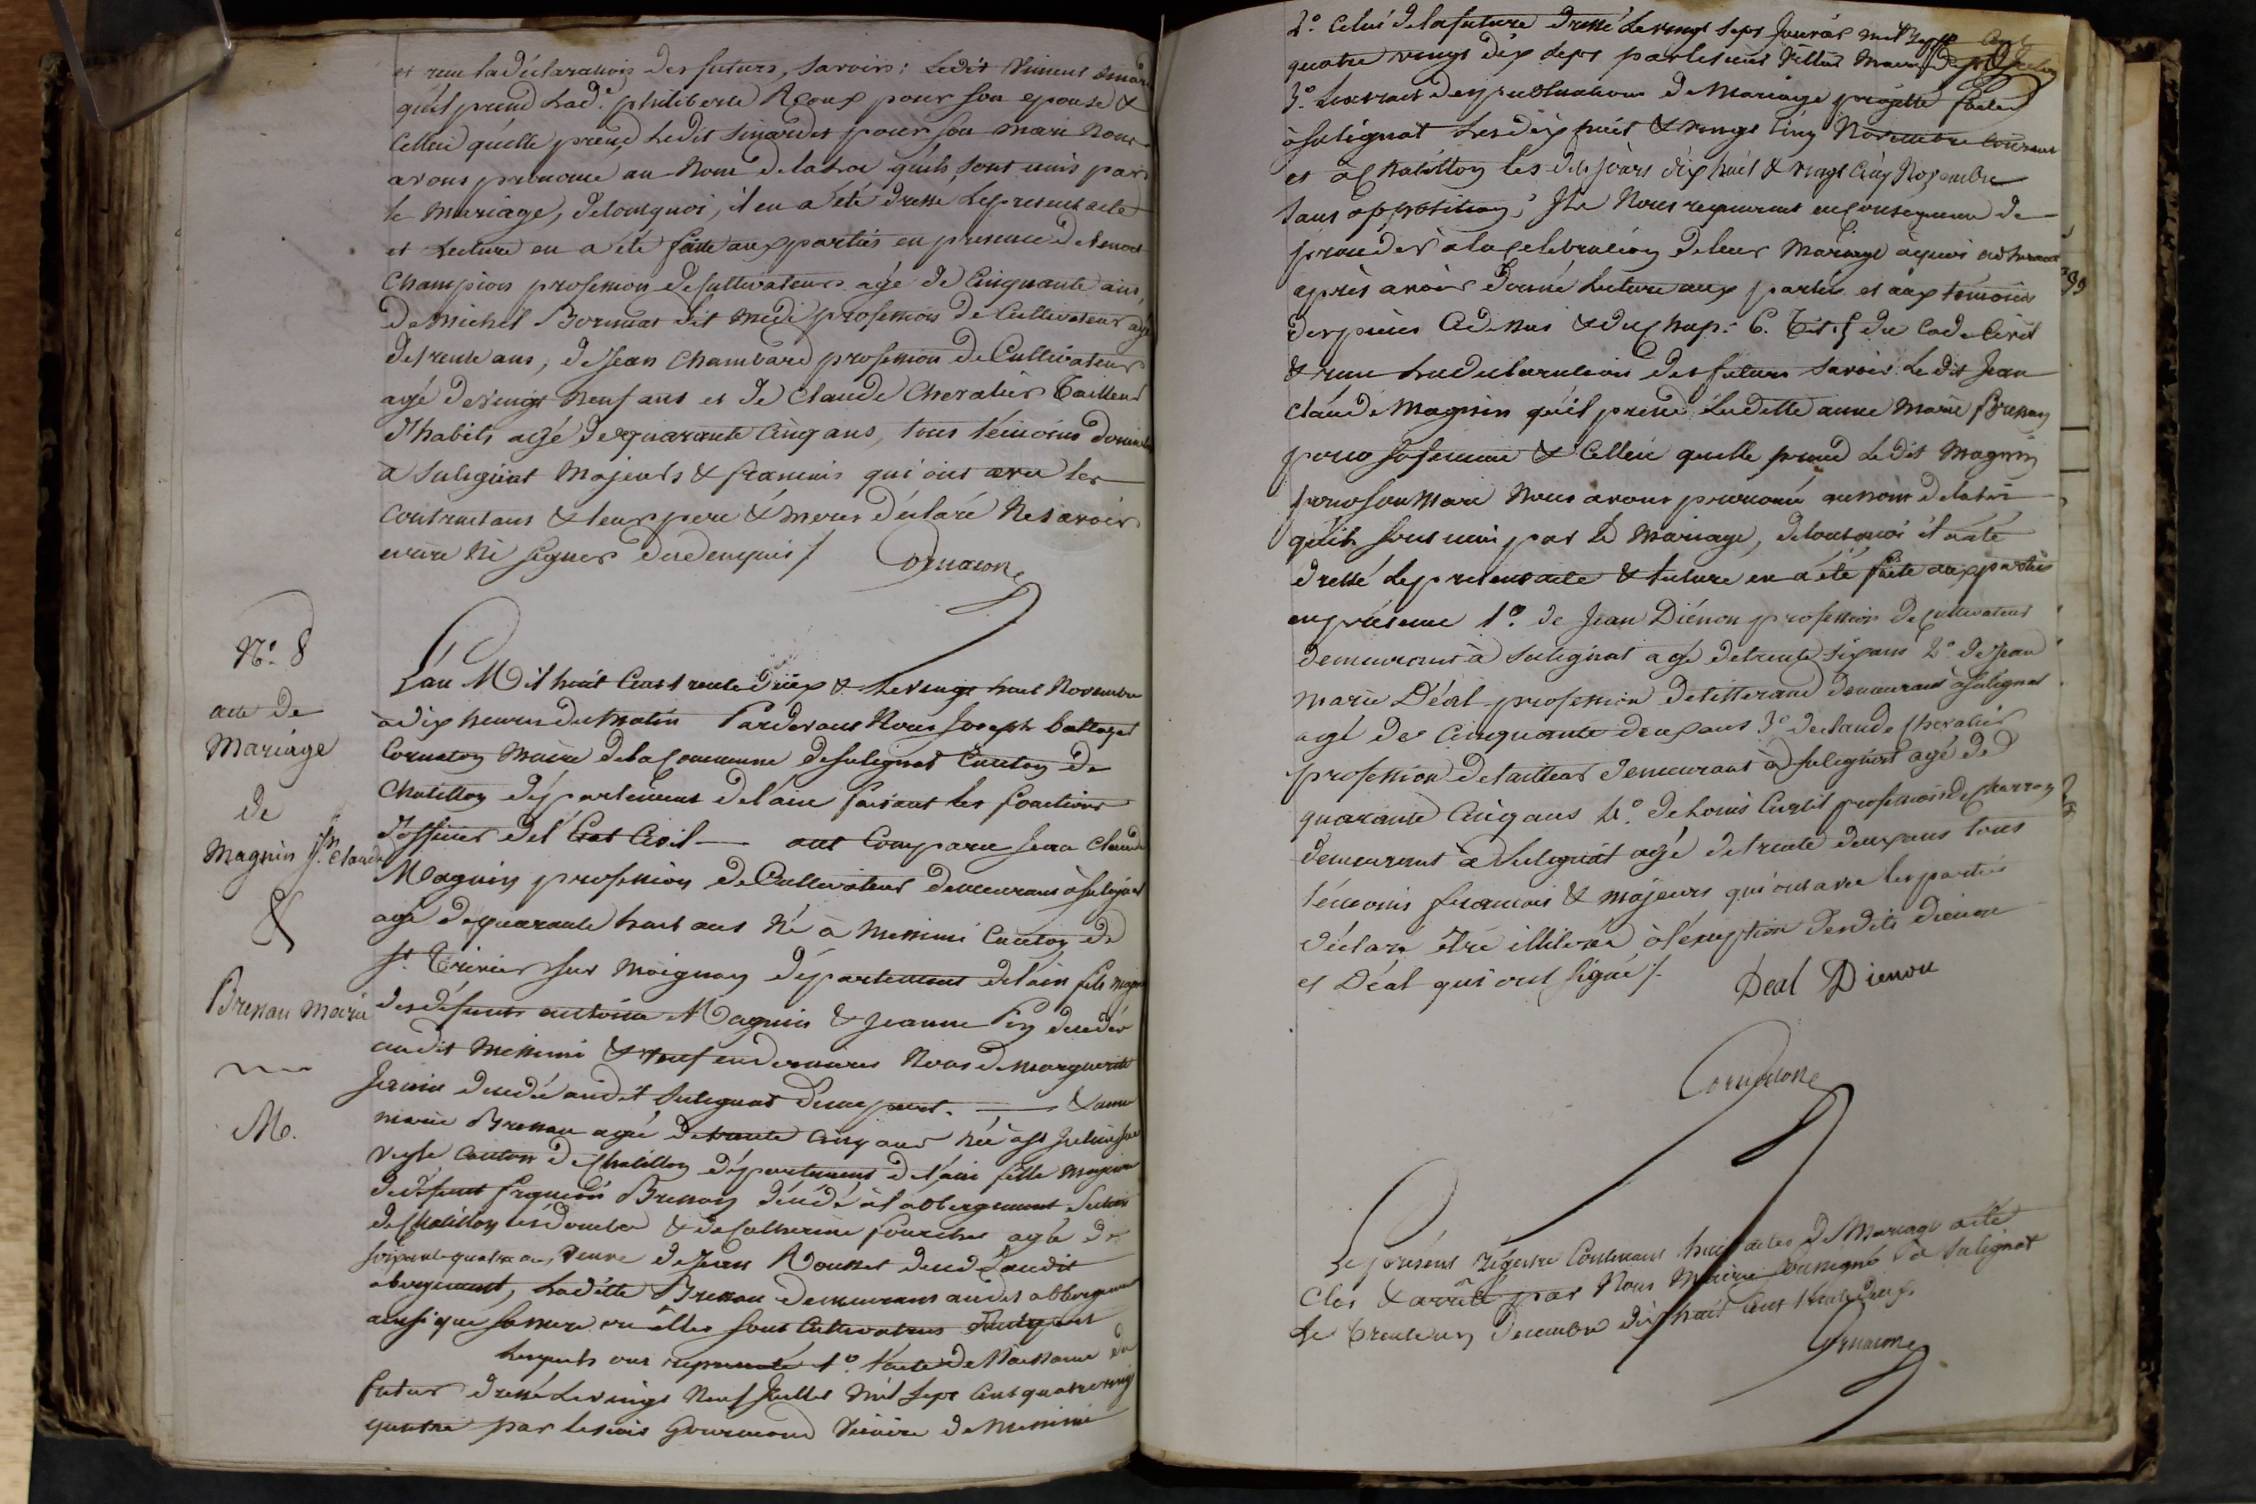 et reçu la déclaration des futurs, savoir: Ledit Vincent
qu'il prend Lad.e philiberte Roux pour son epouse &
Celleci qu'elle prend Ledit Sinardet pour son mari Nous
avons prononcé au Nom de la Loi qu'ils sont unis par
le Mariage, de tout quoi, il en a été dressé Le present acte
et Lecture en a été faite aux parties en presence de benoit
Champion profession de Cultivateur agé de Cinquante ans,
De Michel Bornuat dit medi profession de Cultivateur agé
de trente ans, de Jean Chambard profession de Cultivateur
agé de vingt Neuf ans et de Claude Chevalier Tailleur
d'habits agé de quarante Cinq ans, tous témoins
à Suligniat Majeurs & francais qui ont avec les
Contractans & leurs pere & meres déclaré Ne savoir
ecrire Ni signer de ce enquis /. Cornaton
N.o 8
acte de
Mariage
de
Magnin J.n Claude
&
Bressan Marie
M.
L'an Mil huit Cent trente deux & Le vingt huit Novembre
à dix heures du Matin Pardevant Nous Joseph
Cornaton Maire de la Commune de Sulignat Canton de
Chatillon département de l'ain faisant les fonctions
d'officier de l'Etat Civil — ont Comparu Jean Claude
Magnin profession de Cultivateur demeurant à Sulignat
agé de quarante huit ans Né à Messimi Canton de
St. Trivier sur Moignan département de l'ain fils majeur
des défunts antoine Magnin & Jeanne Pey décédés
audit Messimi & veuf en Noces de Marguerite
décédée audit Sulignat — & anne
marie Bressan agée de trente Cinq ans Née à St Julien sur
Veyle Canton de Chatillon département de l'ain fille majeure
de défunt françois Bressan décédé à l'abbergement
de Chatillon les dombes & de Catherine fourcher agée de
soixante quatre ans, veuve de Jean Rousset décédé audit
abergement, Ladite Bressan demeurant audit abbergement
ainsi que sa mere où elles sont Cultivatrices
Lesquels ont représenté 1.o L'acte de Naissance du
futur dressé Le vingt Neuf Juillet Mil Sept Cent quatre vingt
quatre par le sieur Gourmond Vicaire de Messimi
2.o Celui de la future dressé Le vingt Sept Janvier mil Sept Cent
quatre vingt dix Sept par le sieur Villars
3.o L'extrait des publications de Mariage projetté faites
à Sulignat Les dix huit & vingt Cinq Novembre Courant
et à Chatillon les dits jours dix huit & vingt Cinq Novembre
Sans opposition; Ils Nous requierent en Consequence de
proceder à la Celebration de leur Mariage à quoi adherant
après avoir donné Lecture aux parties et aux témoins
des pieces Ci dessus & du Chap. 6. Tit. 5 du Code Civil
& reçu La declaration des futurs savoir Le dit Jean
Claude Magnin qu'il prend Ladite anne Marie Bressan
pour sa femme & Celleci qu'elle prend Le dit Magnin
pour son Mari Nous avons prononcé au nom de la loi
qu'ils sont unis par Le Mariage, de tout quoi il a été
dressé Le present acte & Lecture en a été faite aux parties
en présence 1.o de Jean Diénon profession de Cultivateur
demeurant à Sulignat agé de trente six ans 2.o de Jean
Marie Déal profession de tisserand demeurant à Sulignat
agé de Cinquante deux ans 3.o de Claude Chevalier
profession de tailleur demeurant à Sulignat agé de
quarante Cinq ans 4.o de Louis Curtil profession de Charron
demeurant à Sulignat agé de trente deux ans tous
témoins francais & majeurs qui ont avec les parties
déclaré être illiteré à l'exception desdits diénon
et Déal qui ont signé /. Deal Dienon
Cornaton
Le présent régistre Contenant huit actes de Mariage a été
Clos & arrêté par Nous Maire soussigné à Sulignat
Le trente un decembre dix huit Cent trente deux.
Cornaton